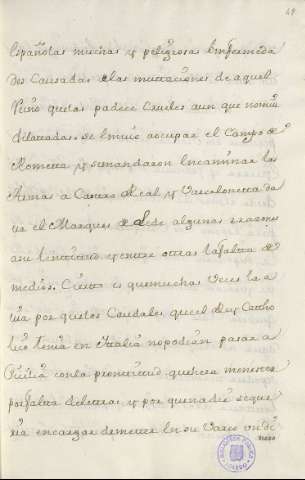 49
Españolas muchas y peligrosas Enfermeda
des Causadas de las mutaciones de aquel
Reino que las padece Crueles aun que no mui
dilattadas, se embió a ocupar el Campo de
Rometta y se mandaron Encaminar las
Armas a Castro Real y Barcelonetta da
va el Marques de Lede algunas razones
asu lentitud y entre otras la falta de
medios. Cierto es que muchas Veces la a
via por que los Caudales que el Rey Catho
lico tenia en Ittalia no podian pasar a
Sicilia con la prontitud que hera menester
por falta de letras, y por que nadie se que
ria encargar de metter en su Varco un di
nero
BIBLIOTECA PUBLICA
TOLEDO